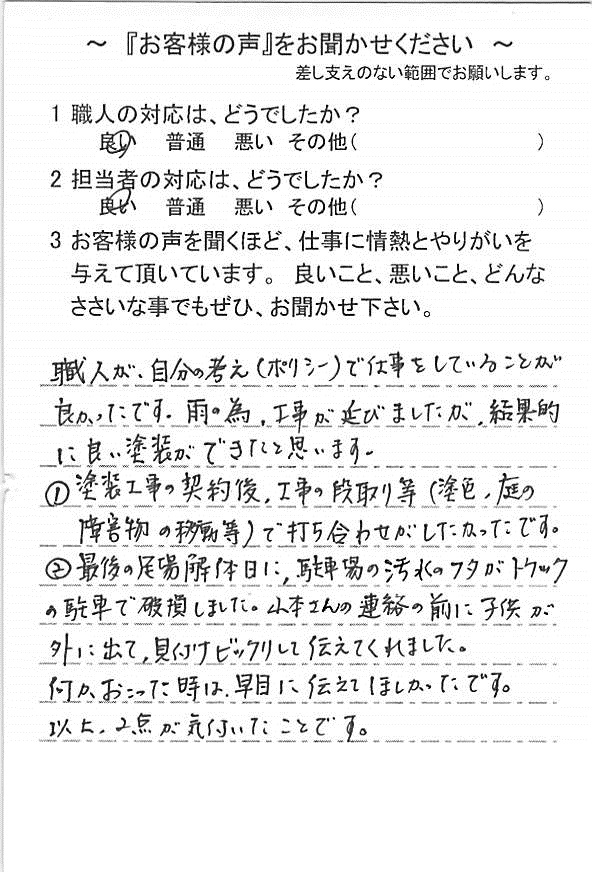 ～ 『お客様の声』をお聞かせください ～
差し支えのない範囲でお願いします。
1 職人の対応は、どうでしたか？
良い 普通 悪い その他( )
2 担当者の対応は、どうでしたか？
良い 普通 悪い その他( )
3 お客様の声を聞くほど、仕事に情熱とやりがいを
与えて頂いています。 良いこと、悪いこと、どんな
ささいな事でもぜひ、お聞かせ下さい。
職人が、自分の考え(ポリシー)で仕事をしていることが
良かったです。雨の為、工事が延びましたが、結果的
に良い塗装ができたと思います。
①塗装工事の契約後、工事の段取り等(塗色、庭の
障害物の移動等)で打ち合わせがしたかったです。
②最後の足場解体日に、駐車場の汚水のフタがトラック
の駐車で破損しました。山本さんの連絡の前に子供が
外に出て、見付けビックリして伝えてくれました。
何か、おこった時は、早目に伝えてほしかったです。
以上、2点が気付いたことです。